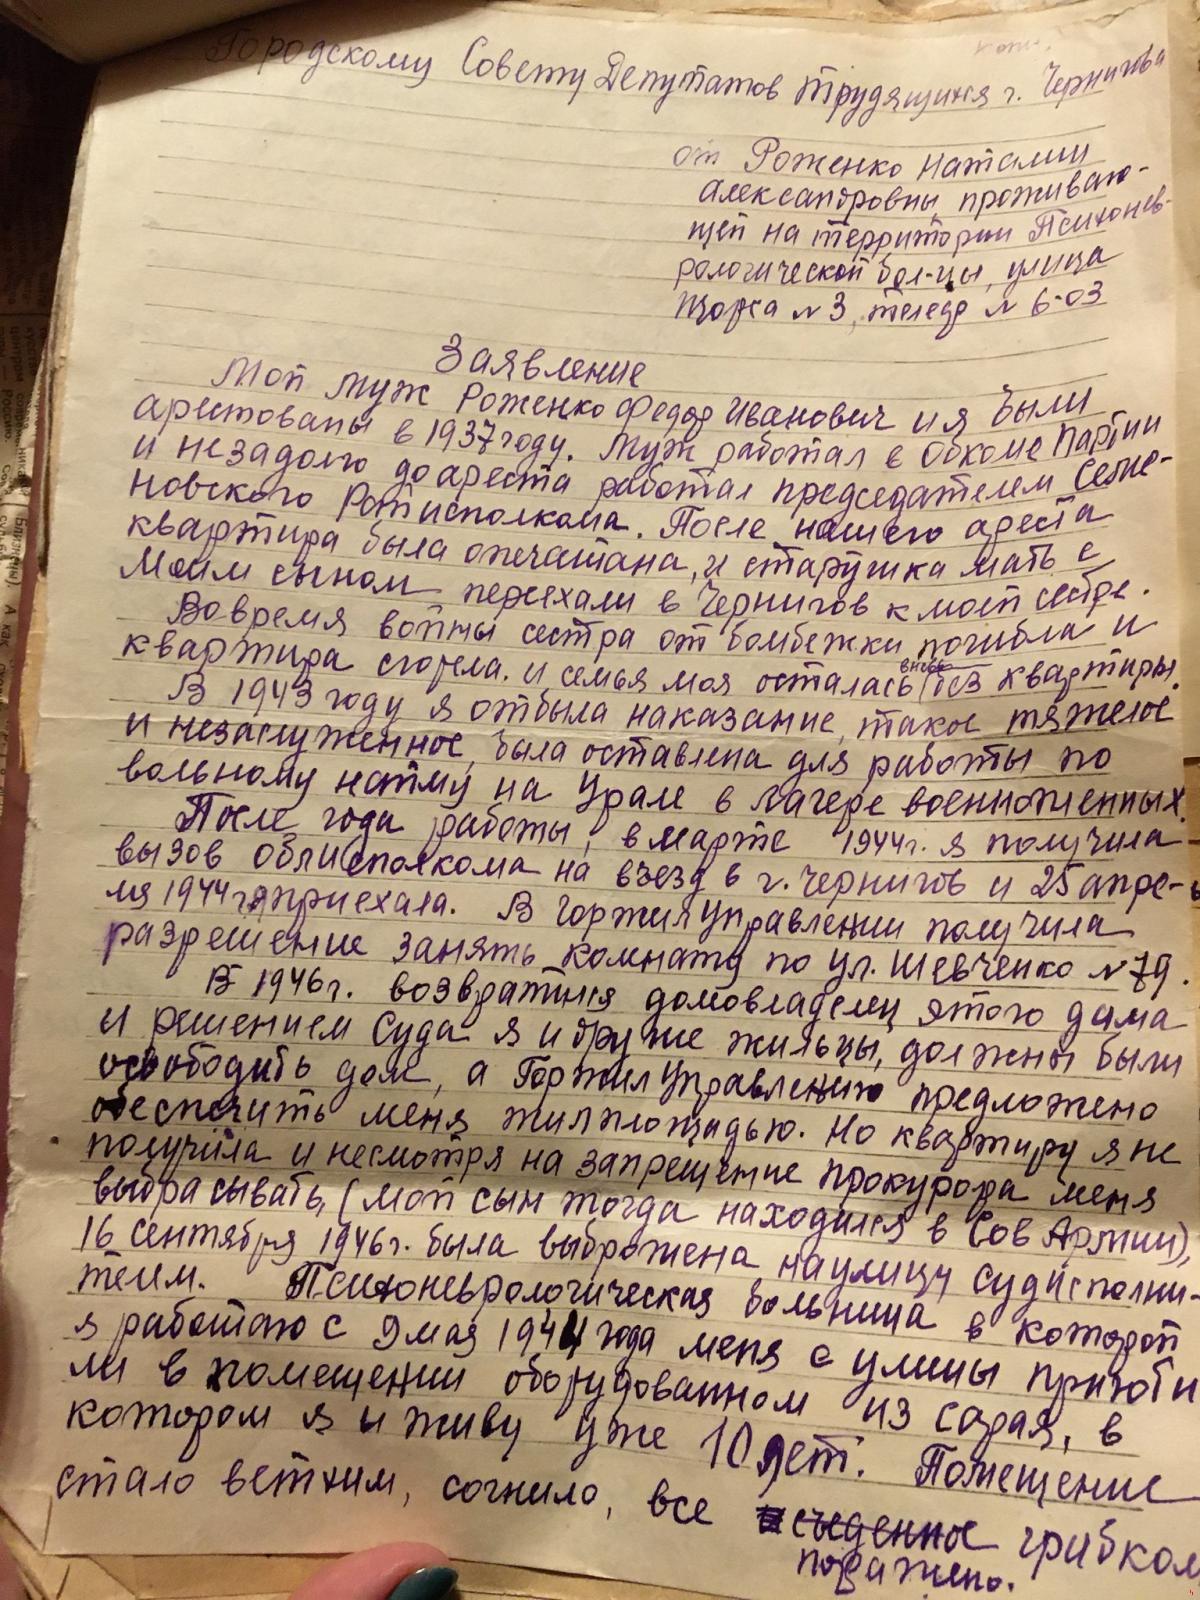 Городскому Совету Депутатов трудящихся г. Чернигова
от Роженко Наталии
Александровны, проживаю-
щей на территории Психонев-
рологической бол-цы, улица
Щорса № 3, телеф № 6-03
Заявление
Мой муж Роженко Федор Иванович и я были
арестованы в 1937 году. Муж работал в Обкоме Партии
и незадолго до ареста работал председателем Семе-
новского Райисполкома. После нашего ареста
квартира была опечатана, и старушка мать с
моим сыном переехали в Чернигов к моей сестре.
Во время войны сестра от бомбежки погибла и
квартира сгорела. и семья моя осталась вновь без квартиры.
В 1943 году я отбыла наказание, такое тяжелое
и незаслуженное, была оставлена для работы по
вольному найму на Урале в лагере военнопленных.
После года работы, в марте 1944 г. я получила
вызов облисполкома на въезд в г. Чернигов и 25 апре-
ля 1944 г я приехала. В Горжилуправлении получила
разрешение занять комнату по ул. Шевченко № 79.
В 1946 г. возвратился домовладелец этого дома
и решением Суда я и другие жильцы, должны были
освободить дом, а Горжилуправлению предложено
обеспечить меня жилплощадью. Но квартиру я не
получила и несмотря на запрещение прокурора меня
выбрасывать, (мой сын тогда находился в Сов Армии),
16 сентября 1946 г. была выброшена на улицу судисполни-
телем. Психоневрологическая больница в которой
я работаю с 9 мая 1944 года меня с улицы приюти
ли в помещении оборудованном из сарая, в
котором я и живу уже 10 лет. Помещение
стало ветхим, сгнило, все съеденное грибком
поражено.